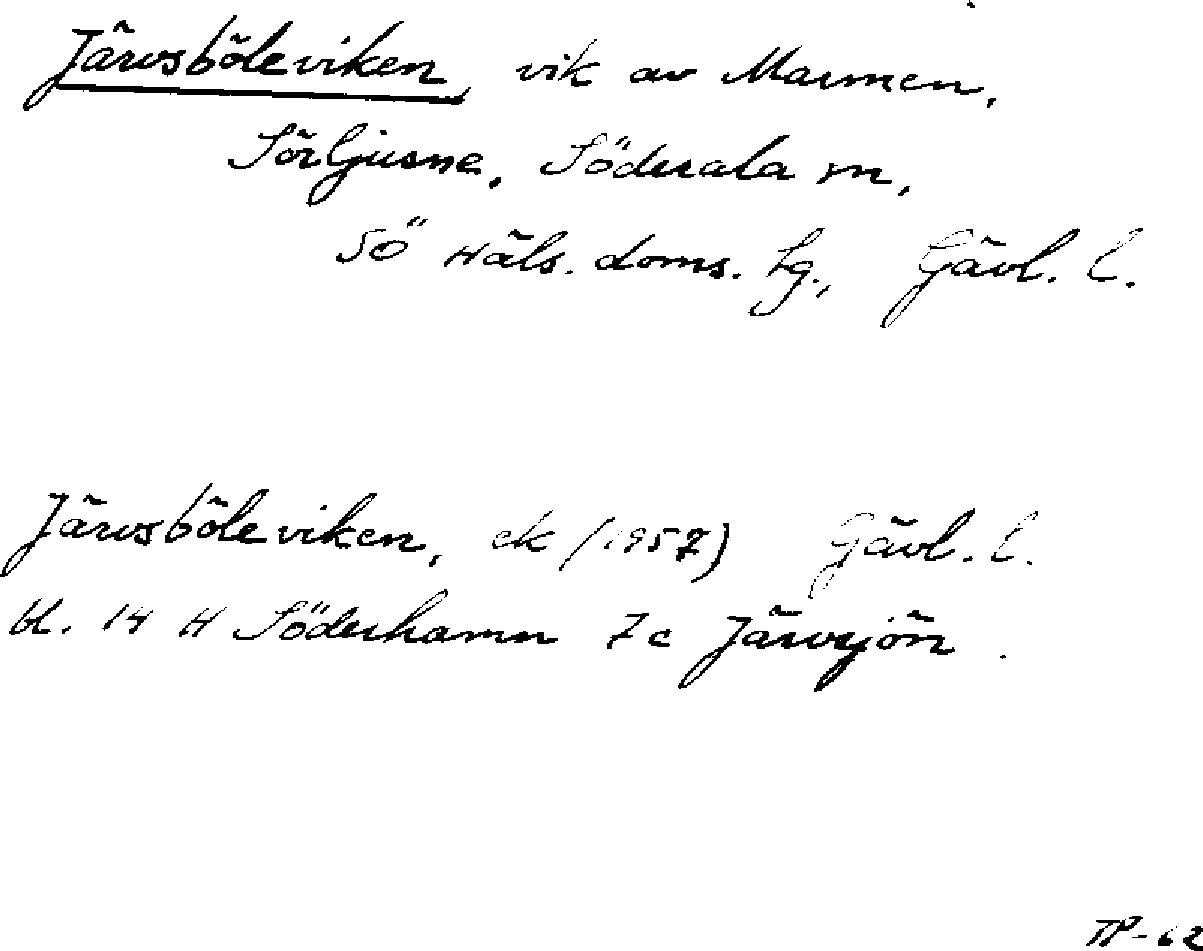 Järvsböleviken, vik av Marmen,
Sörljusne, Söderala sn,
SÖ Häls. doms. tg., Gävl. l.
Järvsböleviken, ek (1957) Gävl. l.
bl. 14 H Söderhamn 7c Järvsjön.
TP-62